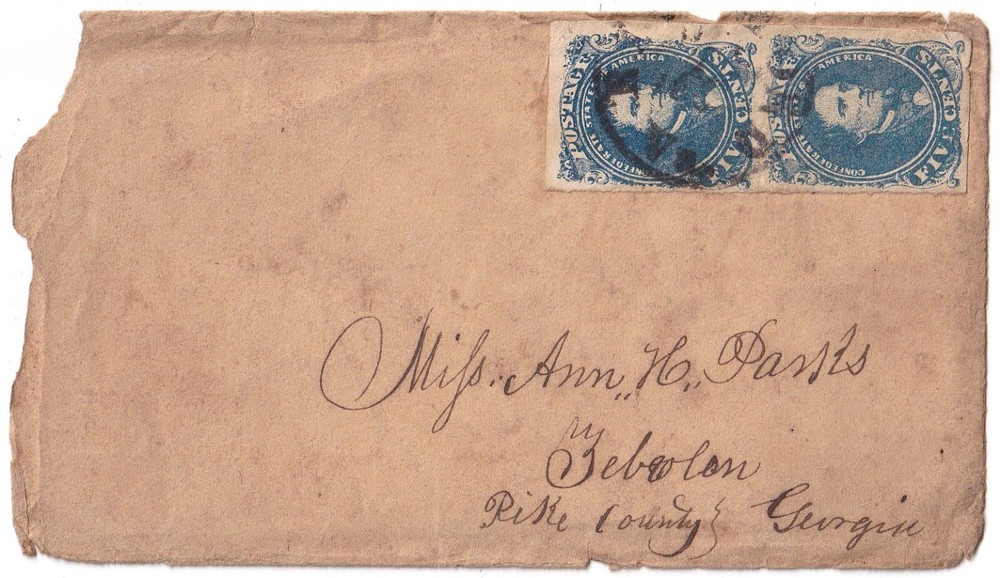 POSTAGE
CONFEDERATE STATES OF AMERICA
FIVE CENTS
POSTAGE
CONFEDERATE STATES OF AMERICA
FIVE CENTS
Miss. Ann „H„ Parks
Zebolon
Pike County Georgia